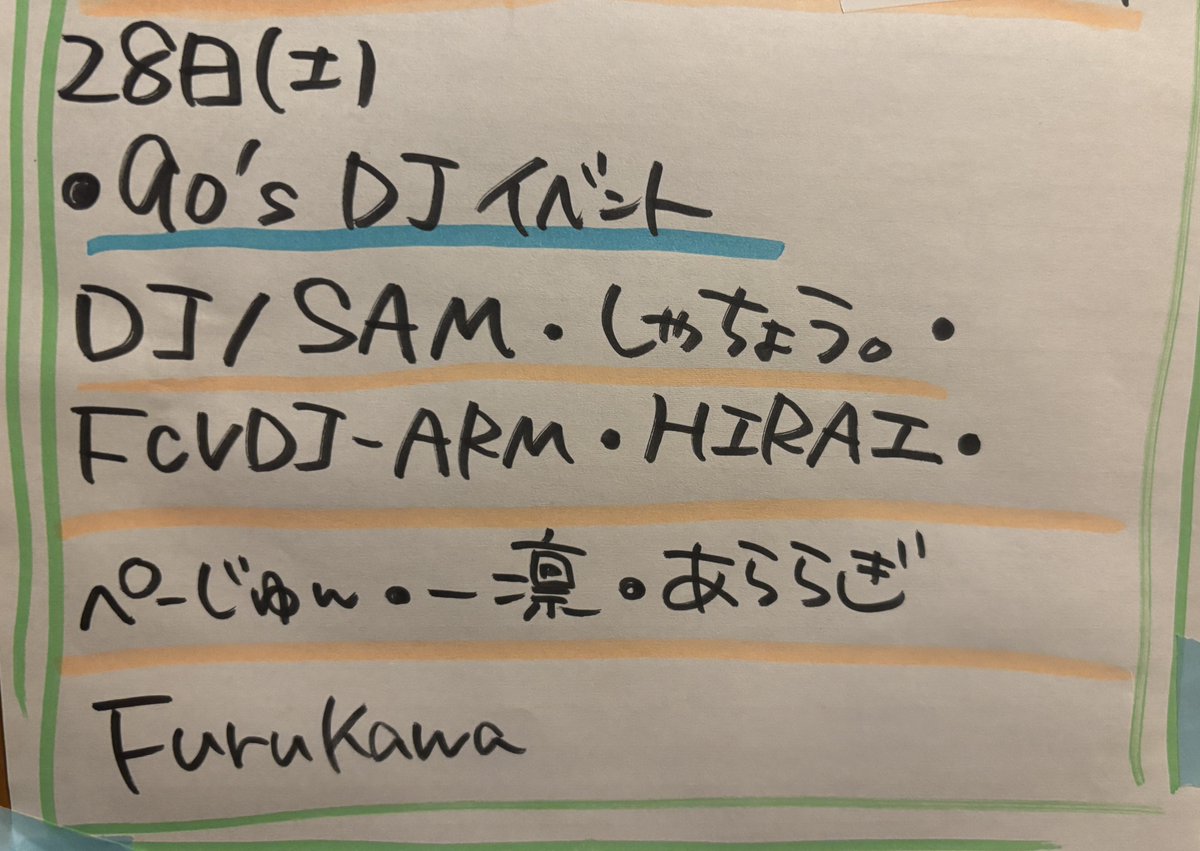 28日(土)
•90's DJ イベント
DJ/SAM・しゃちょう。・
FCVDJ-ARM・HIRAI・
ぺーじゅん・一凛・あららぎ
Furukawa